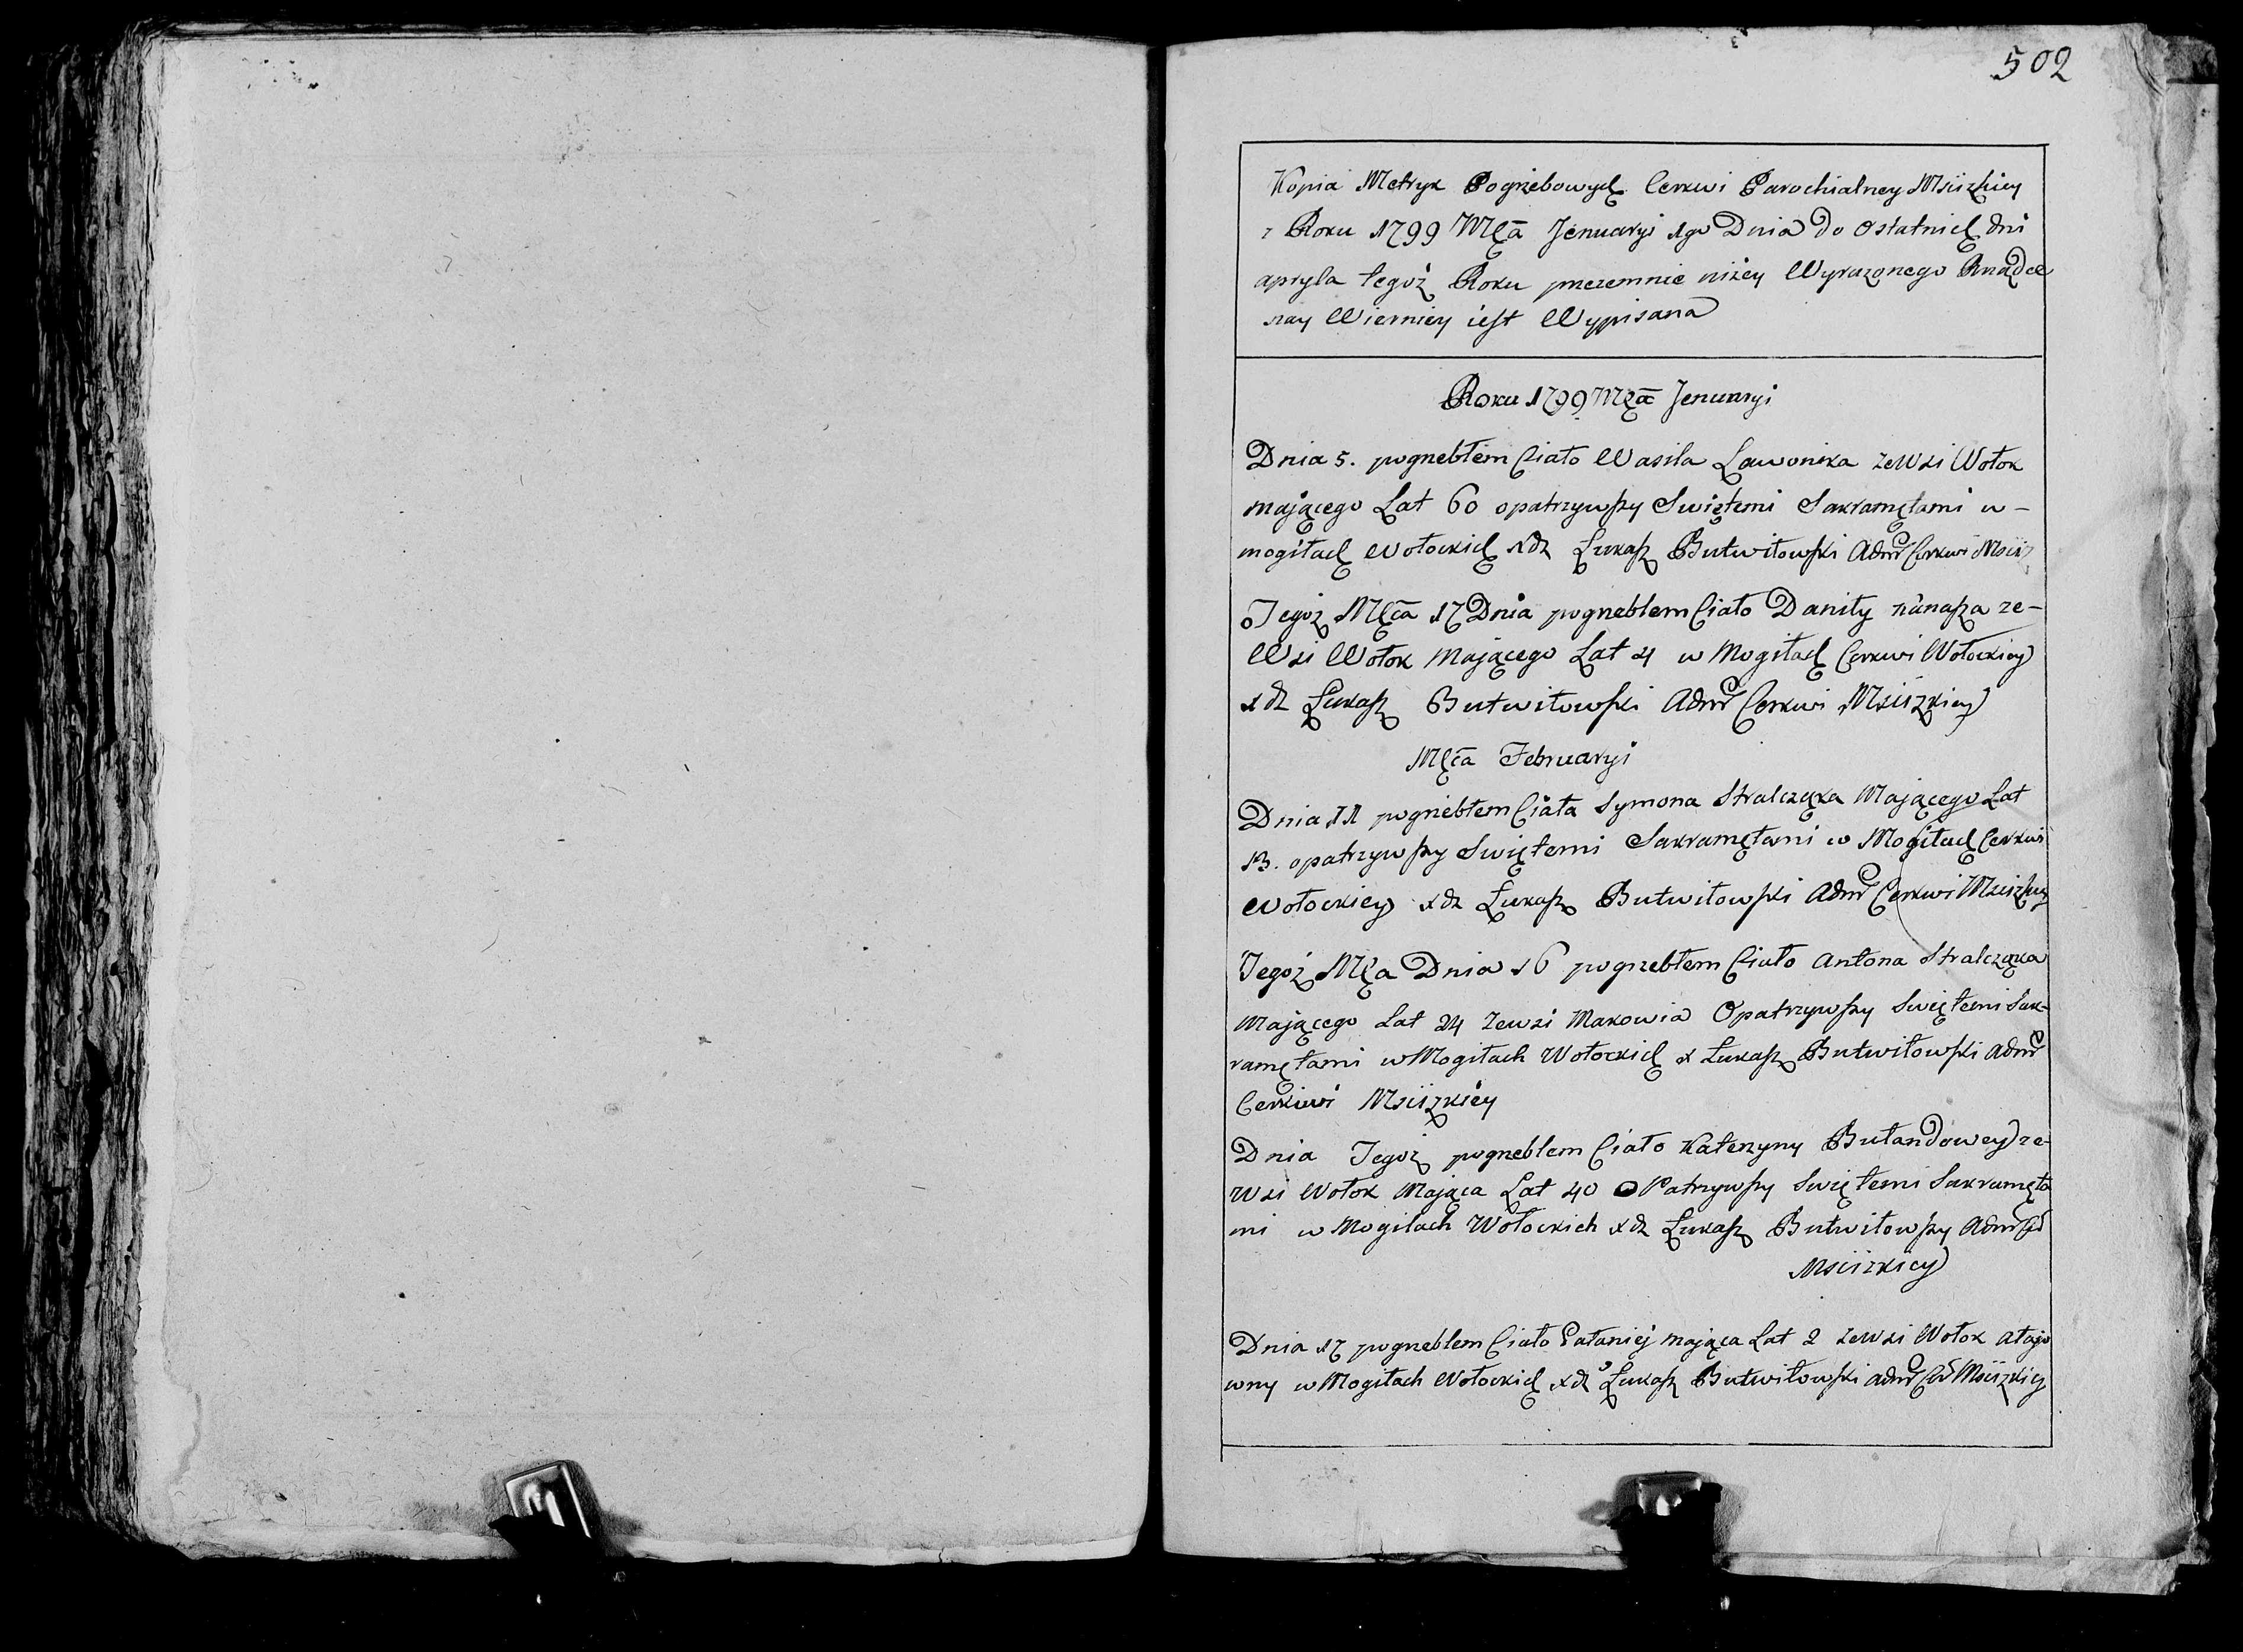 502
Kopia Metryk Pogrzebowych Cerkwi Parochialney Msciżkiey
z Roku 1799 Mca Jenuaryi 1go Dnia do Ostatnich dni
apryla tegoż Roku przezemnie niżey Wyrazonego
nay Wierniey iest Wypisana
Roku 1799 Mca Jenuaryi
Dnia 5. pogrzebłem Ciało Wasila Lawonika ze Wsi Wołok
mającego Lat 60 opatrzywszy Swiętemi Sakramętami w -
mogiłach Wołockich xdz Łukasz Butwiłowski Admr Cerkwi Msciż
Tegoż Mca 17 Dnia pogrzebłem Ciało Daniły ze -
Wsi Wołok Mającego Lat 4 w Mogiłach Cerkwi Wołockiey
xdz Łukasz Butwiłowski Admr Cerkwi Msciżkiey
Mca Februaryi
Dnia 11 pogrzebłem Ciała Symona Stralcząka Mającego Lat
13. opatrzywszy Swiętemi Sakramętami w Mogiłach Cerkwi
Wołockiey xdz Łukasz Butwiłowski Admr Cerkwi Msciżkiey
Tegoż Mca Dnia 16 pogrzebłem Ciało Antona Stralcząka
Mającego Lat 24 ze wsi Makowia Opatrzywszy Swiętemi Sak-
ramętami w Mogiłach Wołockich x Łukasz Butwiłowski Admr
Cerkiwi Msciżkiey
Dnia Tegoż pogrzebłem Ciało Katerzyny Butandowey ze -
Wsi Wołok Mająca Lat 40 OPatrzywszy Swiętemi Sakramęta
mi w Mogiłach Wołockich xdz Łukasz Butwiłowszy Admr
Msciżkiey
Dnia 17 pogrzebłem Ciało Pałaniej mająca Lat 2 ze Wsi Wołok Atajo
wny w Mogiłach Wołockich xdz Łukasz Butwiłowski admr Msciżkiey